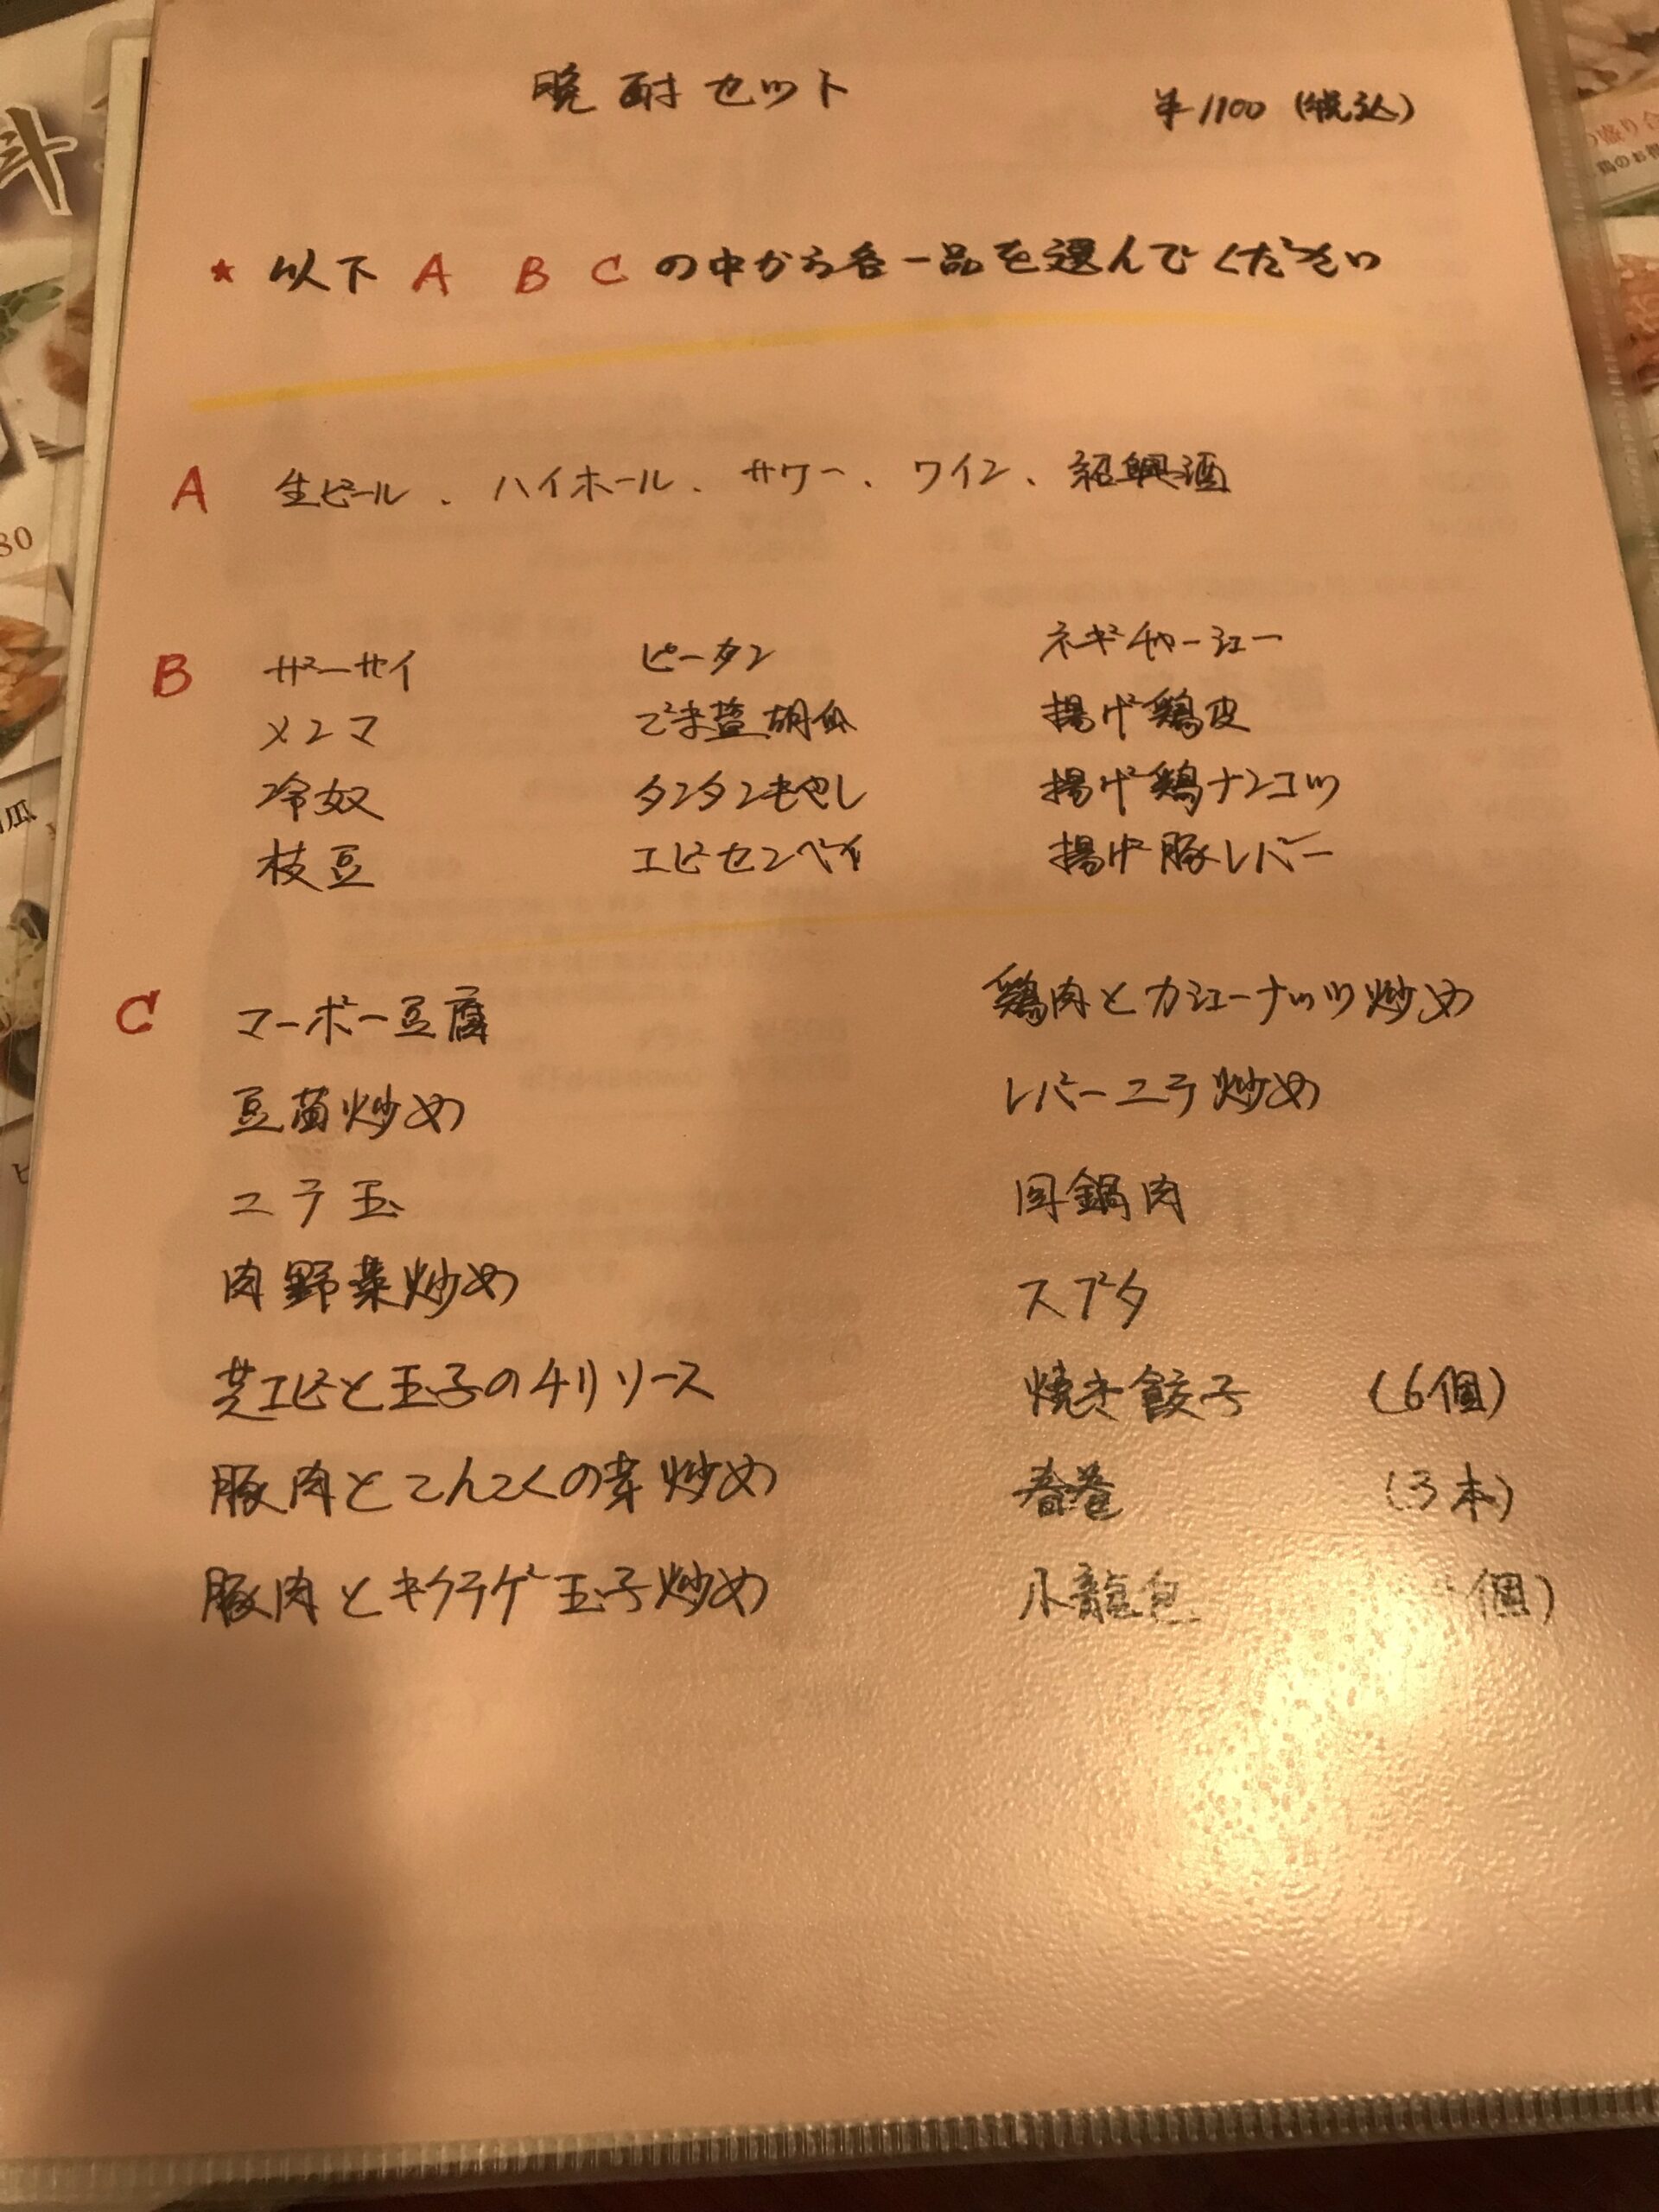 晩酌セット ¥1100 (税込)
★ 以下 A B C の中から各一品を選んでください
A 生ビール、ハイホール、サワー、ワイン、紹興酒
B ザーサイ ピータン ネギチャーシュー
メンマ ごま塩胡瓜 揚げ鶏皮
冷奴 タンタンもやし 揚げ鶏ナンコツ
枝豆 エビセンベイ 揚げ豚レバー
C マーボー豆腐 鶏肉とカシューナッツ炒め
豆苗炒め レバーニラ炒め
ニラ玉 回鍋肉
肉野菜炒め スブタ
芝エビと玉子のチリソース 焼き餃子 (6個)
豚肉とにんにくの芽炒め 春巻 (3本)
豚肉とキクラゲ玉子炒め 小龍包 個)
斗
80
瓜
ピ
の盛り合
鶏のお